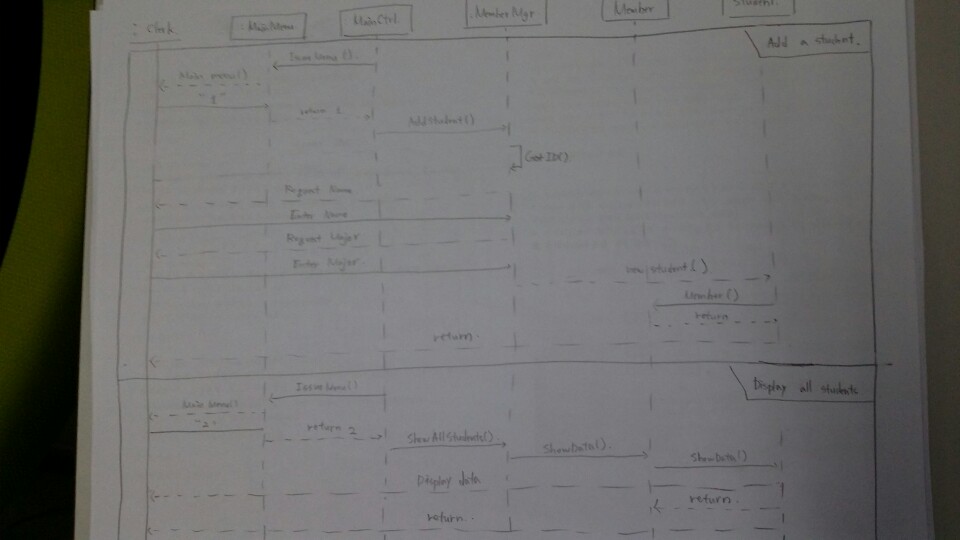 : Clerk
:MainMenu
MainCtrl
:MemberMgr
Member
Student
Add a student.
IssueMenu().
Main menu()
"1"
return 1
AddStudent()
GetID()
Request Name
Enter Name
Request Major
Enter Major.
new student()
Member()
return
return.
Display all students
IssueMenu()
Main Menu()
"2"
return 2
ShowAllStudents()
ShowData().
ShowData()
Display data
return.
return.